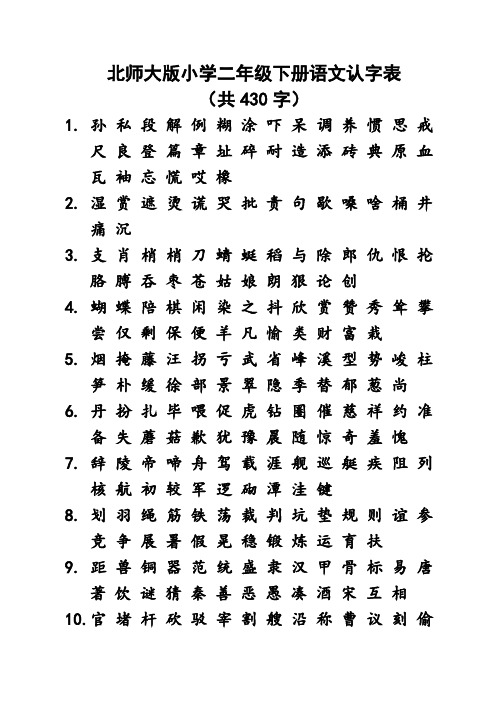 北师大版小学二年级下册语文认字表
（共430字）
1. 孙 私 段 解 例 糊 涂 吓 呆 调 养 惯 思 戒
尺 良 登 篇 章 址 碎 耐 造 添 砖 典 原 血
瓦 袖 忘 慌 哎 橡
2. 湿 赏 遮 烫 谎 哭 批 责 句 歇 嗓 啥 桶 井
痛 沉
3. 支 肖 梢 梢 刀 蜻 蜓 稻 与 除 郎 仇 恨 抡
胳 膊 吞 枣 苍 姑 娘 朗 狠 论 创
4. 蝴 蝶 陪 棋 闲 染 之 抖 欣 赏 赞 秀 耸 攀
尝 仅 剩 保 便 羊 凡 愉 类 财 富 栽
5. 烟 掩 藤 汪 拐 亏 武 省 峰 溪 型 势 峻 柱
笋 朴 缓 徐 部 景 翠 隐 季 替 郁 葱 尚
6. 丹 扮 扎 毕 喂 促 虎 钻 圈 催 慈 祥 约 准
备 失 蘑 菇 歉 犹 豫 晨 随 惊 奇 羞 愧
7. 辞 陵 帝 啼 舟 驾 载 涯 舰 巡 艇 疾 阻 列
核 航 初 较 军 逻 砌 潭 洼 键
8. 划 羽 绳 筋 铁 荡 裁 判 坑 垫 规 则 谊 参
竞 争 展 暑 假 晃 稳 锻 炼 运 育 扶
9. 距 兽 铜 器 范 统 盛 隶 汉 甲 骨 标 易 唐
著 饮 谜 猜 秦 善 恶 愚 凑 酒 宋 互 相
10. 官 堵 杆 砍 驳 宰 割 艘 沿 称 曹 议 刻 偷